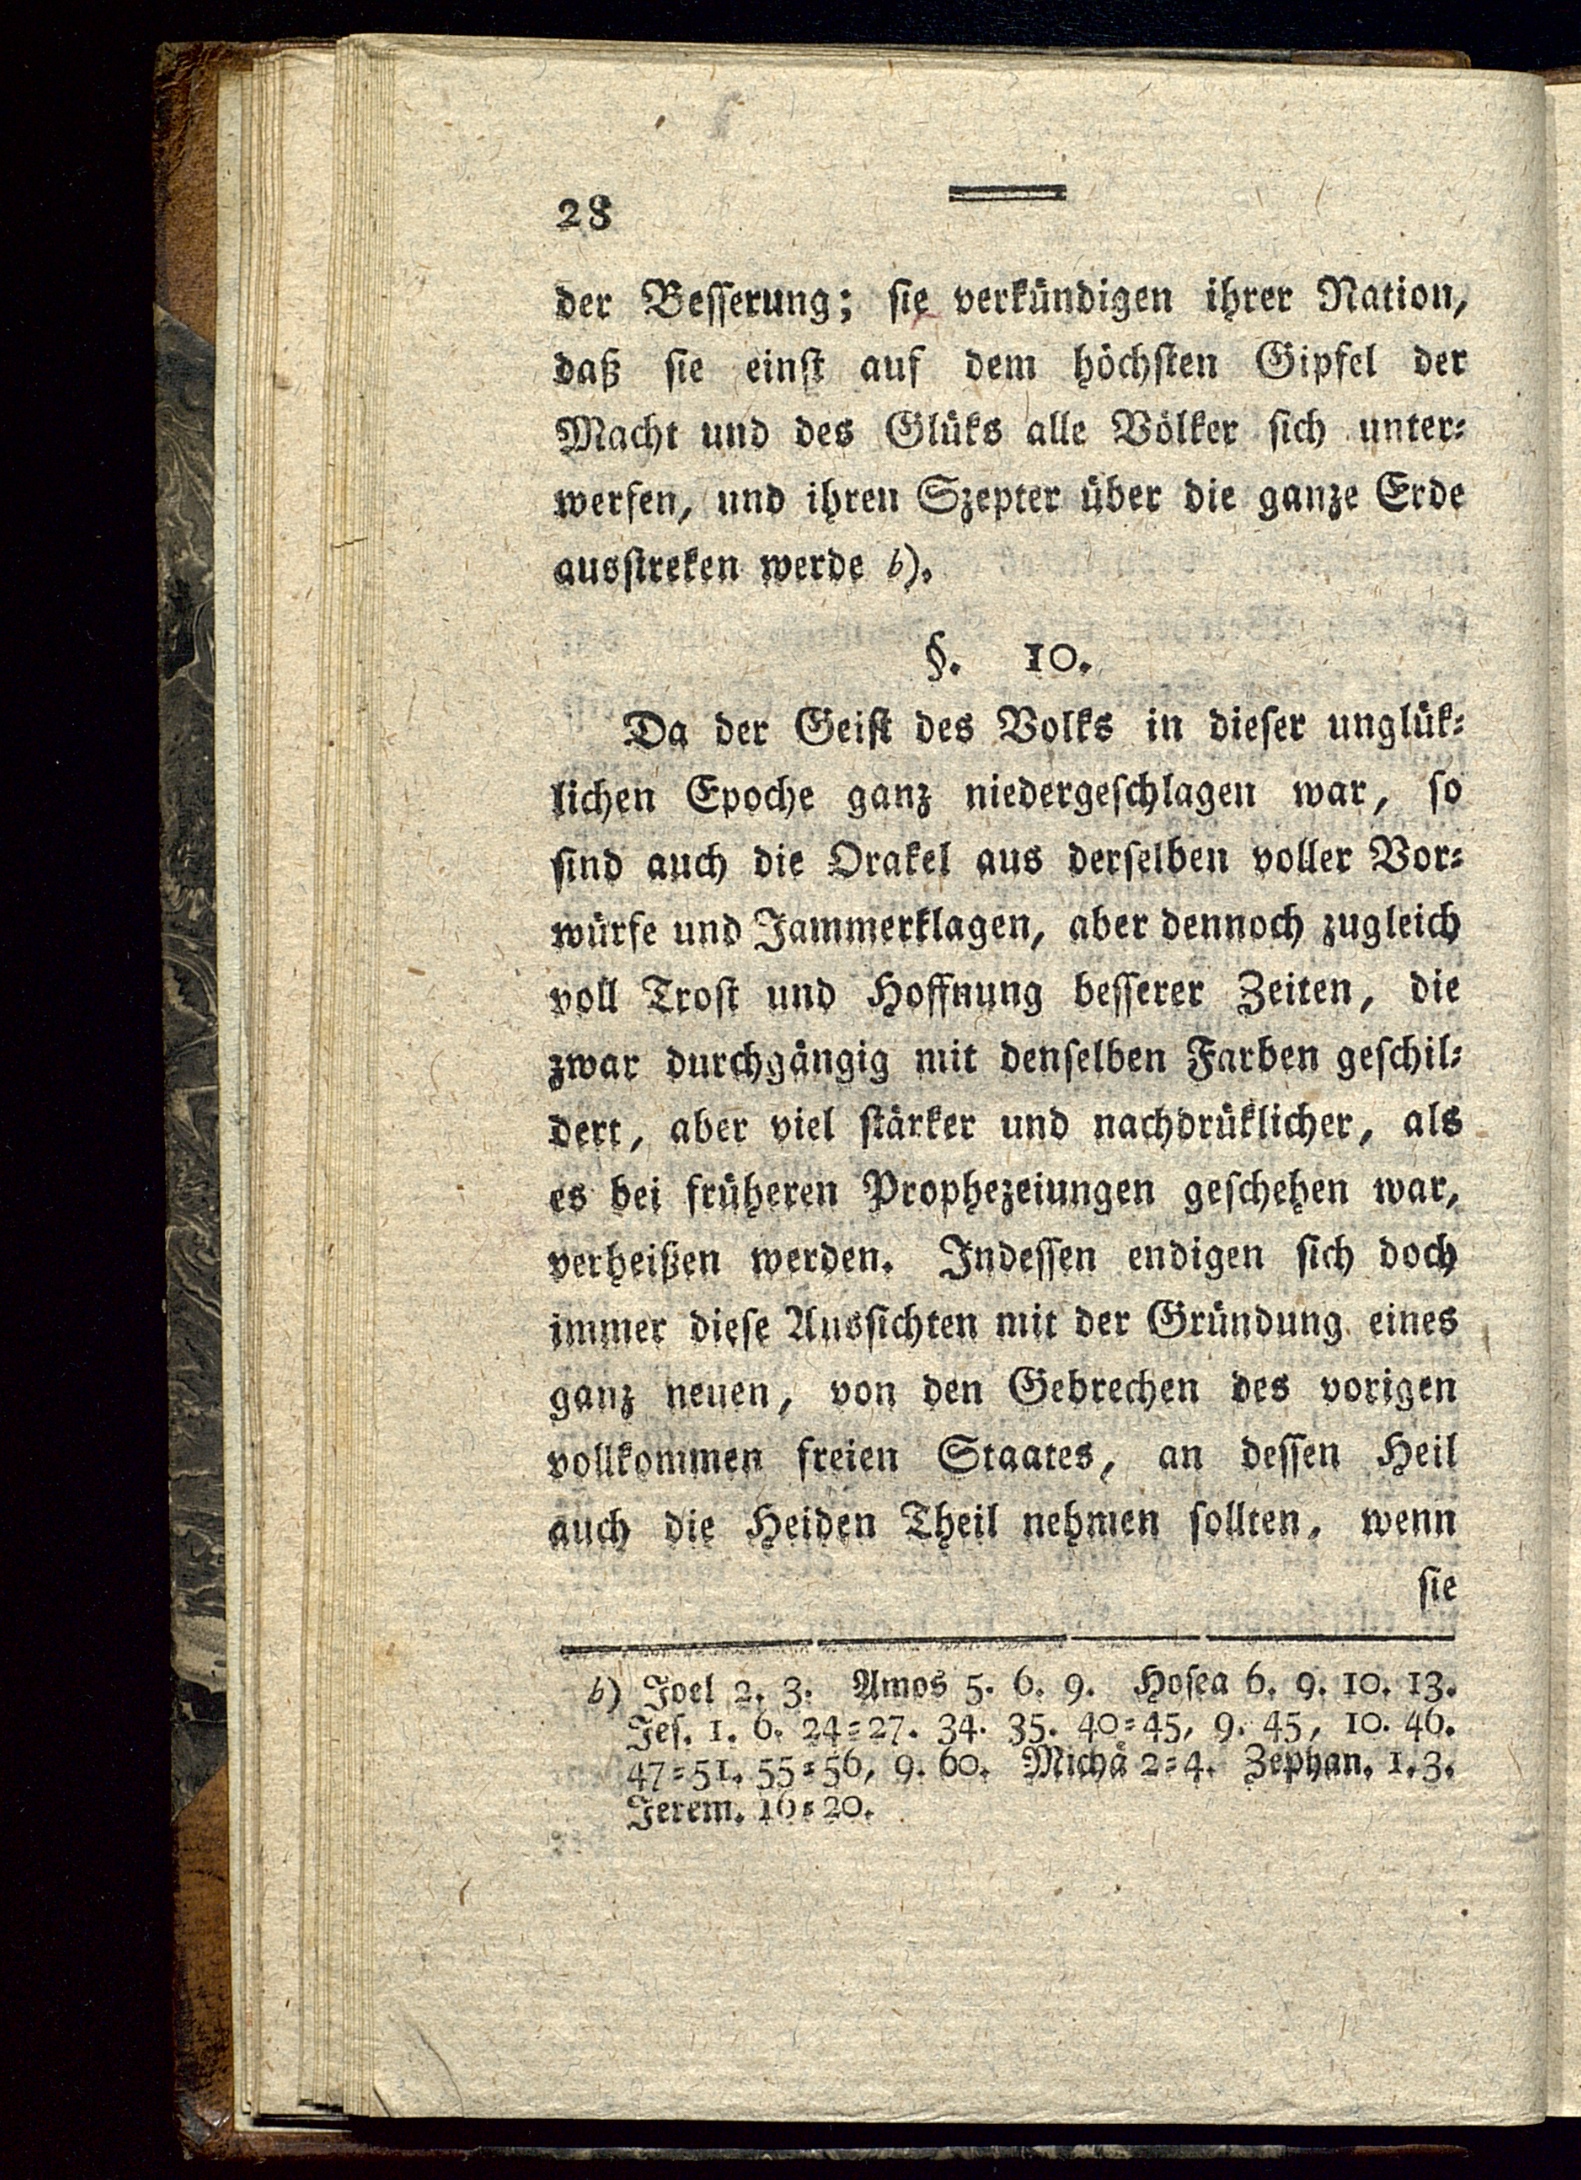 28
der Besserung; sie verkündigen ihrer Nation,
daß sie einst auf dem höchsten Gipfel der
Macht und des Glüks alle Völker sich unter-
werfen, und ihren Szepter über die ganze Erde
ausstreken werde b).
§. 10.
Da der Geist des Volks in dieser unglük-
lichen Epoche ganz niedergeschlagen war, so
sind auch die Orakel aus derselben voller Vor-
würfe und Jammerklagen, aber dennoch zugleich
voll Trost und Hoffnung besserer Zeiten, die
zwar durchgängig mit denselben Farben geschil-
dert, aber viel stärker und nachdrüklicher, als
es bei früheren Prophezeiungen geschehen war,
verheißen werden. Indessen endigen sich doch
immer diese Aussichten mit der Gründung eines
ganz neuen, von den Gebrechen des vorigen
vollkommen freien Staates, an dessen Heil
auch die Heiden Theil nehmen sollten, wenn
sie
b) Joel 2. 3. Amos 5. 6. 9. Hosea 6. 9. 10. 13.
Jes. 1. 6. 24-27. 34. 35. 40-45, 9. 45, 10. 46.
47-51. 55-56, 9. 60. Michä 2-4. Zephan. 1. 3.
Jerem. 16-20.